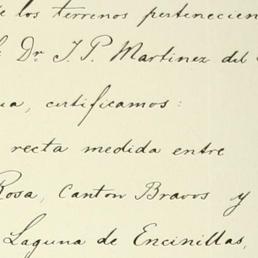 de los terrenos pertenecien
Dr. J. P. Martinez del
ua, certificamos:
recta medida entre
Rosa, Canton Bravos y
Laguna de Encinillas,